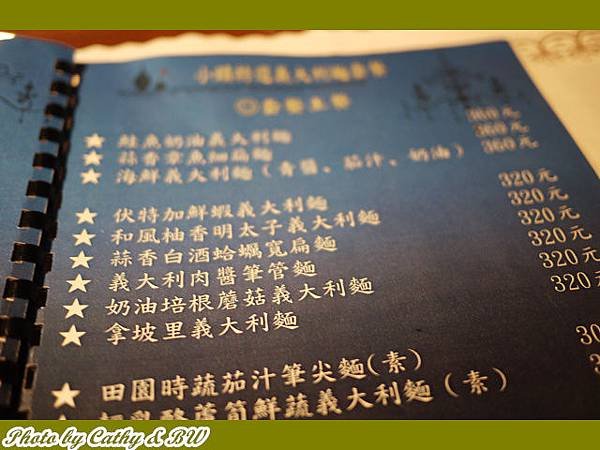 小鎮特選義大利麵套餐
◎套餐主餐
★ 鮭魚奶油義大利麵 360元
★ 蒜香章魚細扁麵 360元
★ 海鮮義大利麵（青醬、茄汁、奶油） 360元
★ 伏特加鮮蝦義大利麵 320元
★ 和風柚香明太子義大利麵 320元
★ 蒜香白酒蛤蠣寬扁麵 320元
★ 義大利肉醬筆管麵 320元
★ 奶油培根蘑菇義大利麵 320元
★ 拿坡里義大利麵 320元
★ 田園時蔬茄汁筆尖麵(素) 30
蘆筍鮮蔬義大利麵（素） 3
Photo by Cathy & BW